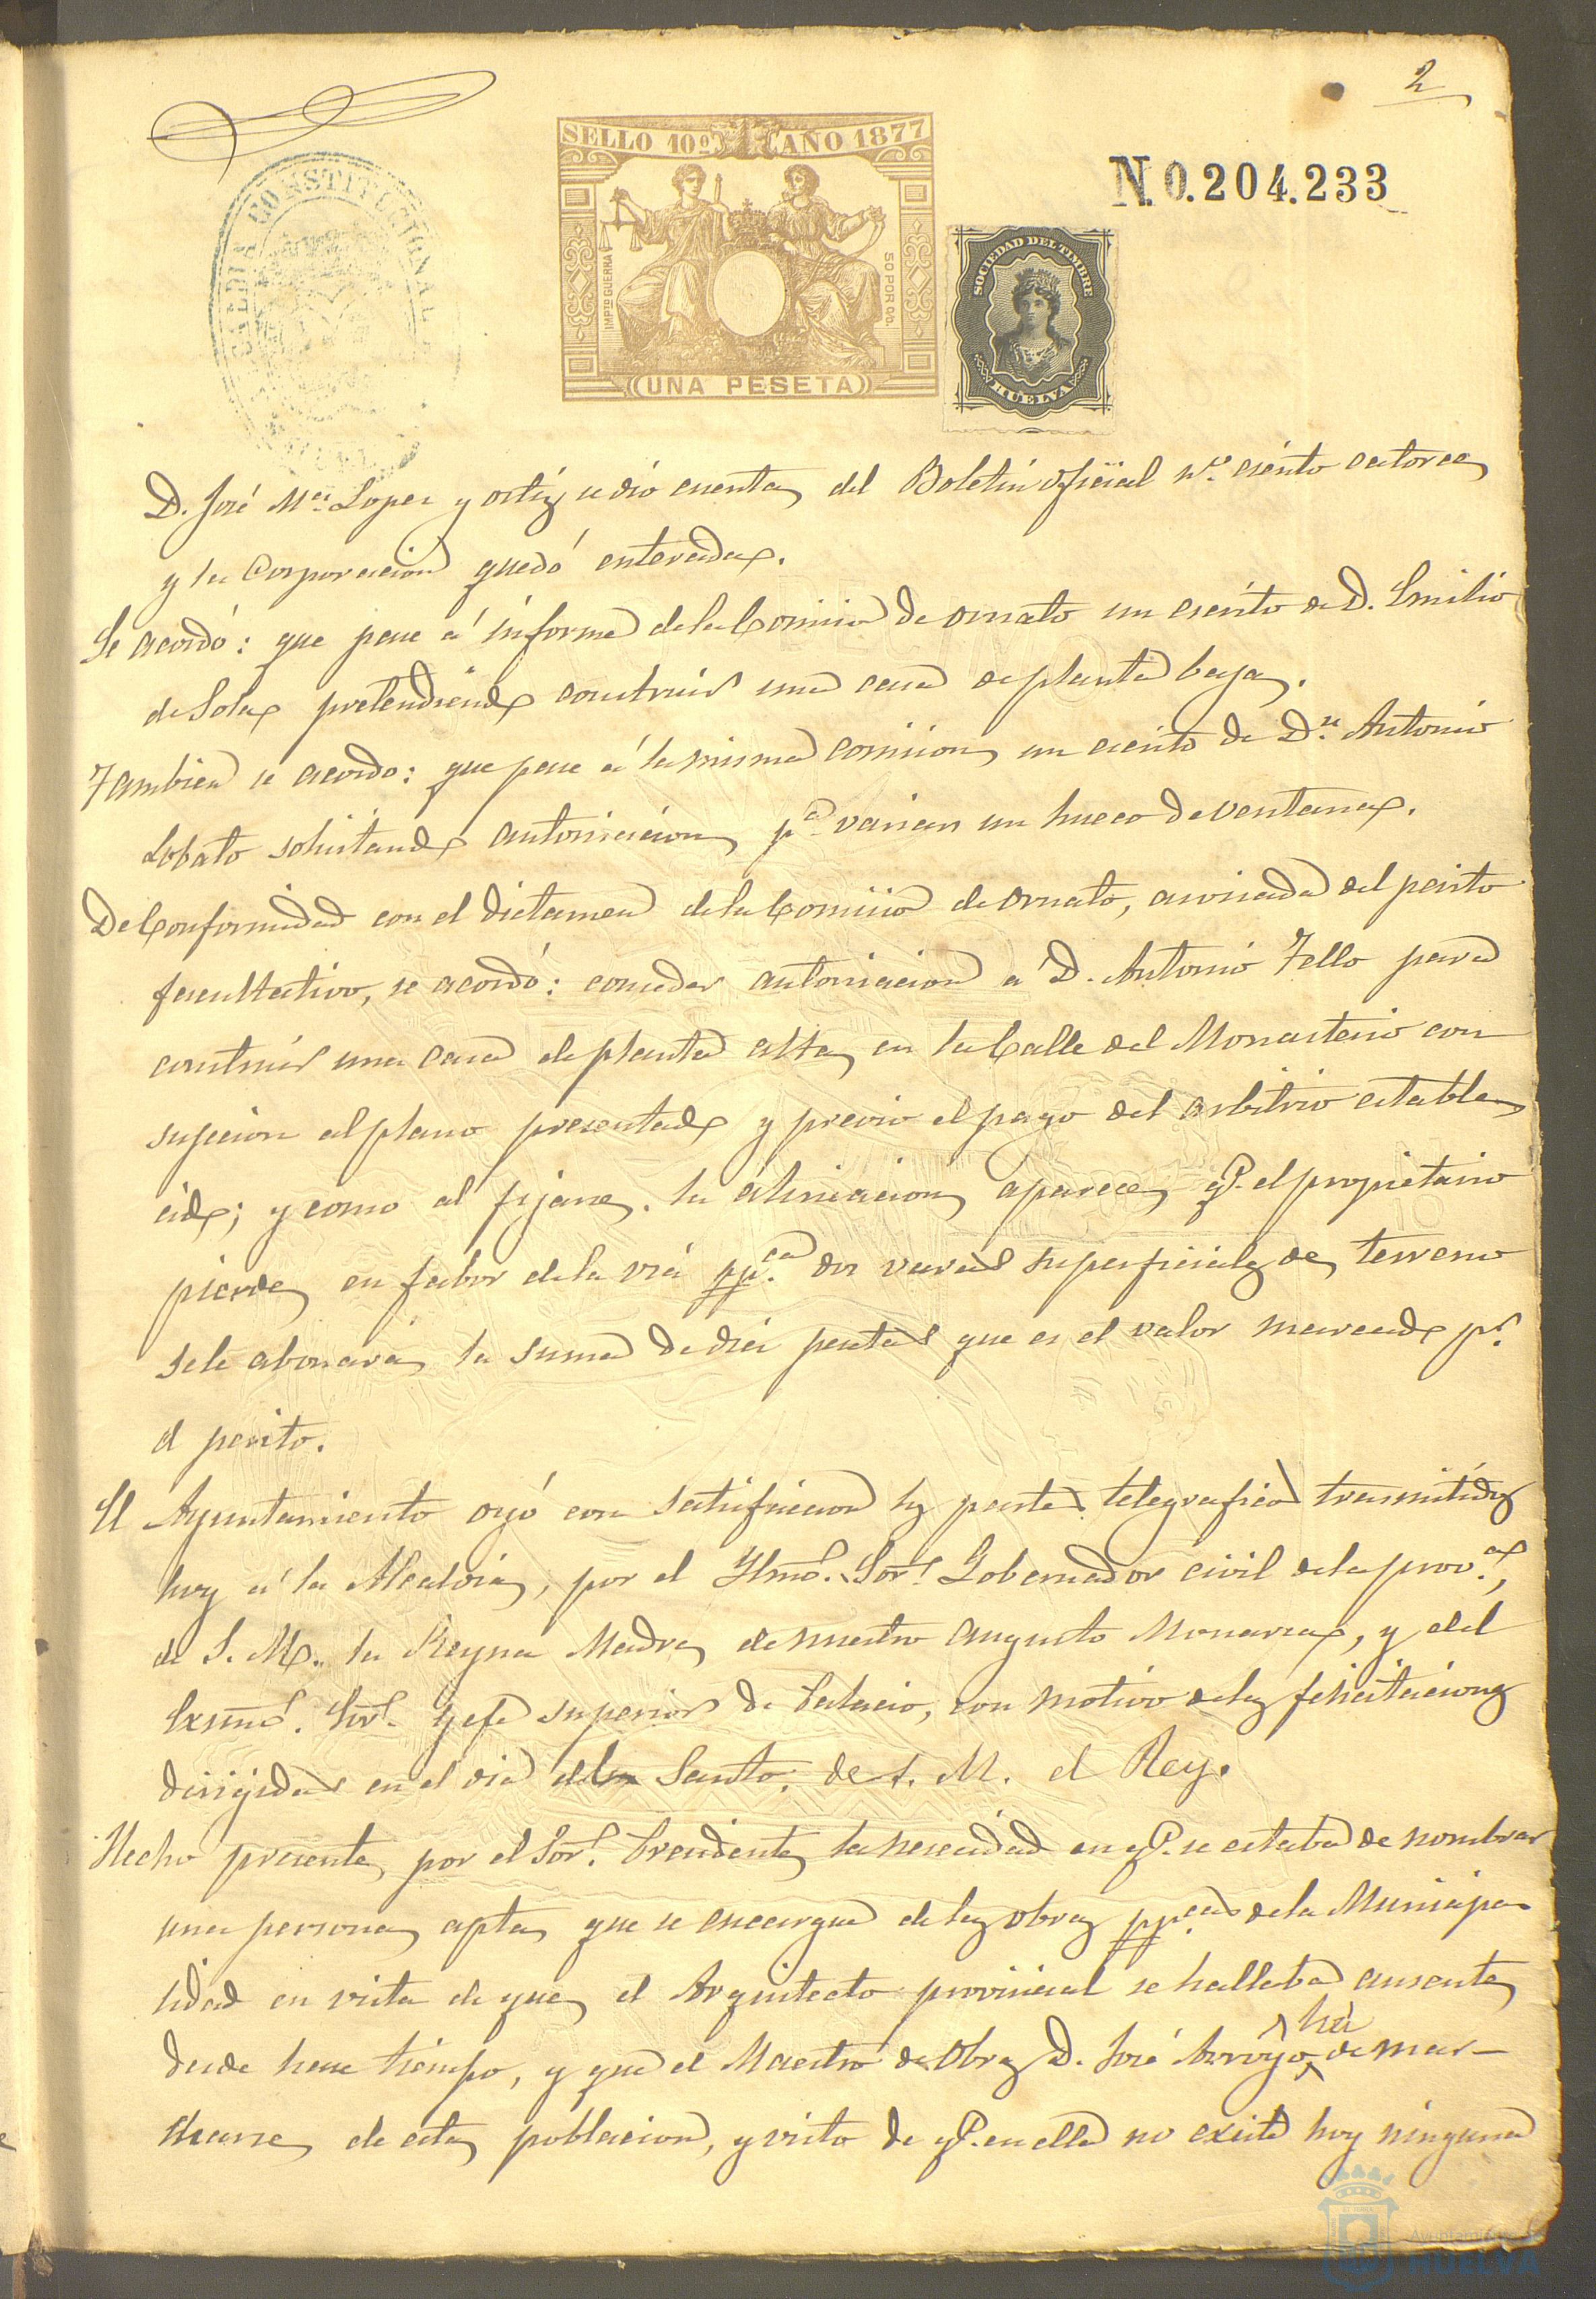 2
SELLO 10º AÑO 1877
N.0.204.233
ALCALDIA CONSTITUCIONAL
SOCIEDAD DEL TIMBRE
IMPTO GUERRA
50 POR 0/0.
UNA PESETA
HUELVA
D. José Mª Lopez y ortiz se dió cuenta del Boletin oficial nº ciento catorce
y la Corporacion quedó enterada.
Se acordó: que pase á informe de la Comision de ornato un escrito de D. Emilio
de Sola pretendiendo construir una casa de planta baja.
Tambien se acordo: que pase á la misma comision un escrito de Dn. Antonio
Lobato solicitando autorizacion pa variar un hueco de ventana.
De Conformidad con el dictamen de la Comision de ornato, asociada del perito
facultativo, se acordó: conceder autorizacion a D. Antonio Tello para
construir una casa de planta alta en la Calle del Monasterio con
sugecion al plano presentado y previo el pago del arbitrio estable
cido; y como al fijarse la alineacion aparece q.e el propietario
pierde en fabor de la via pp.ca dos varas superficiales de terreno
se le abonará la suma de diez pesetas que es el valor marcado pr.
el perito.
El Ayuntamiento oyó con satisfaccion los partes telegraficos trasmitidos
hoy á la Alcaldia, por el Yltmo. Sor. Gobernador civil de la prova.,
de S. M. la Reyna Madre de nuestro Augusto Monarca, y del
Exsmo. Sor. Gefe superior de Palacio, con motivo de las felicitaciones
dirigidas en el dia del Santo de S. M. el Rey.
Hecho presente por el Sor. Presidente la nesecidad en q.e se estaba de nombrar
una persona apta que se encargue de las obras pp.cas de la Municipa
lidad en vista de que el Arquitecto provincial se hallaba ausente
desde hace tiempo, y que el Maestro de Obras D. José Arroyo há de mar-
charse de esta poblacion, y visto de q.e en ella no existe hoy ninguna
Ayuntamiento
HUELVA